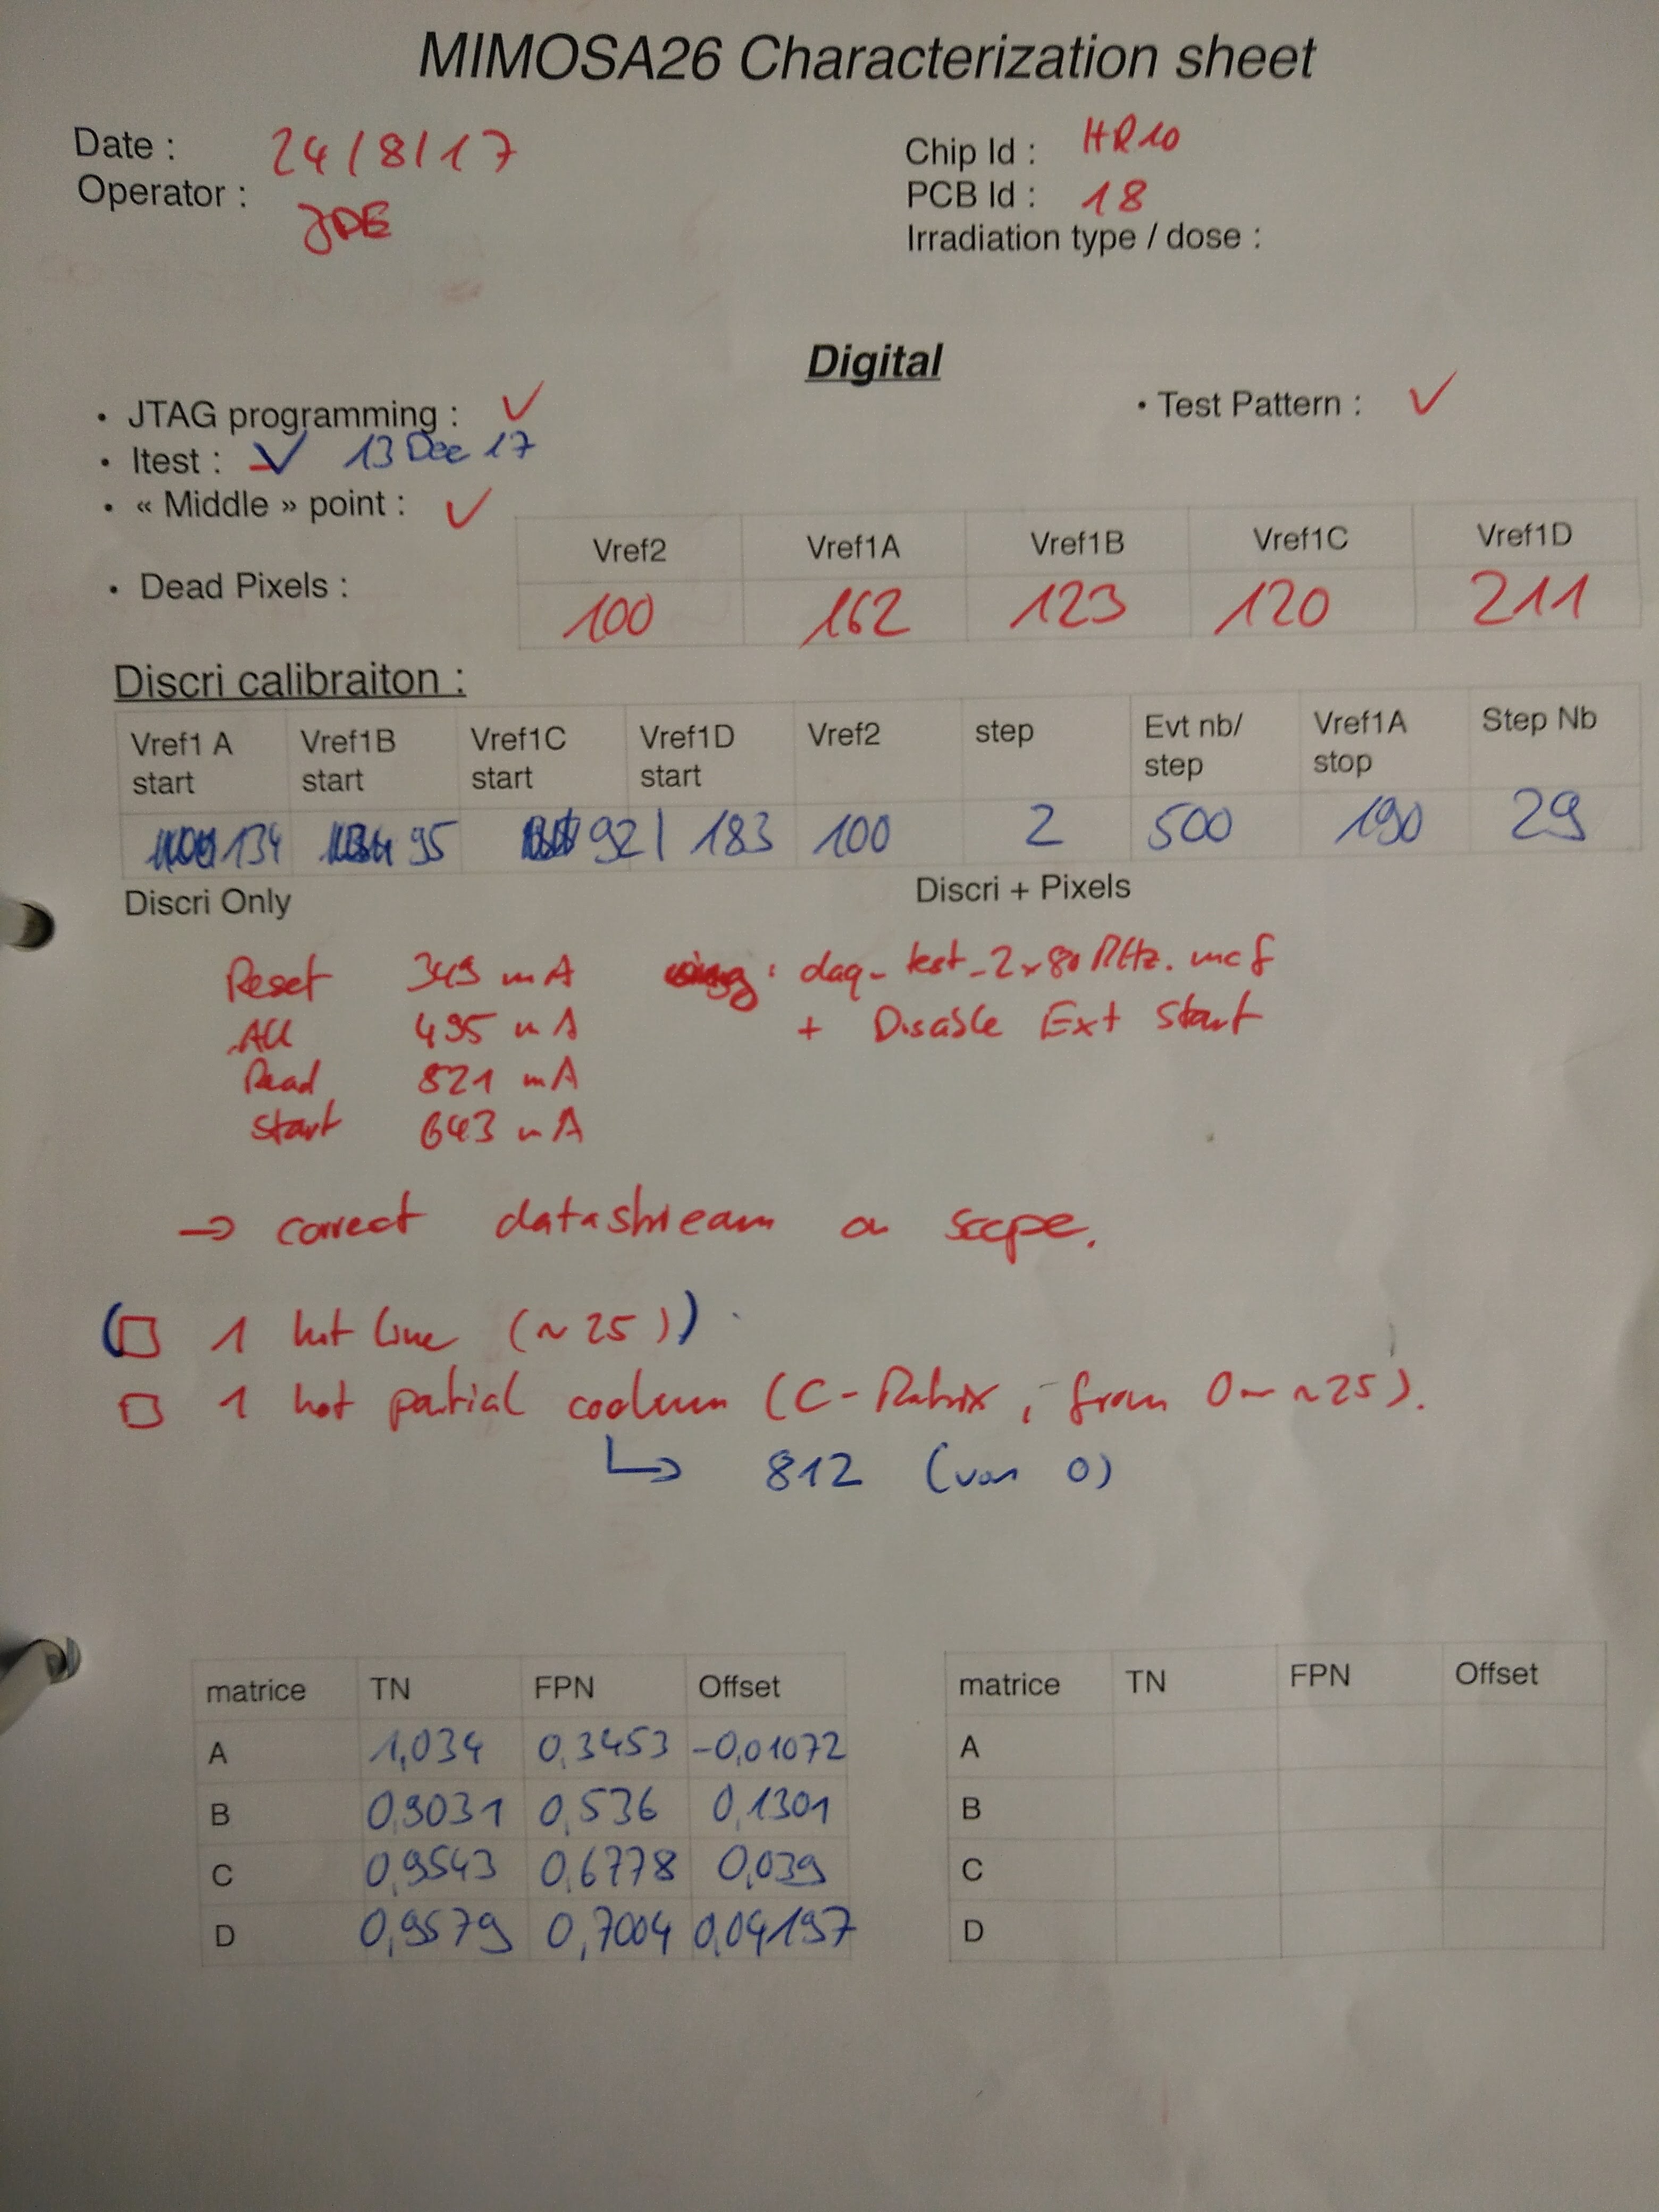 MIMOSA26 Characterization sheet
Date : 24/8/17
Operator : JDE
Chip Id : HR10
PCB Id : 18
Irradiation type / dose :
Digital
• JTAG programming : ✓
• Test Pattern : ✓
• Itest : ✓ 13 Dec 17
• « Middle » point : ✓
• Dead Pixels :
Vref2 Vref1A Vref1B Vref1C Vref1D
100 162 123 120 211
Discri calibraiton :
Vref1 A start Vref1B start Vref1C start Vref1D start Vref2 step Evt nb/ step Vref1A stop Step Nb
134 95 92 | 183 100 2 500 190 29
Discri Only
Discri + Pixels
Reset 349 mA
: daq_test_2x80MHz.mcf
All 495 mA
+ Disable Ext Start
Read 821 mA
Start 643 mA
→ correct datastream on scope.
(□ 1 hot line (~25))
□ 1 hot partial coolumn (C-Matrix, from 0 — ~25).
↳ 812 (von 0)
matrice TN FPN Offset
A 1,034 0,3453 -0,01072
B 0,9031 0,536 0,1301
C 0,9543 0,6778 0,039
D 0,9579 0,7004 0,04197
matrice TN FPN Offset
A
B
C
D